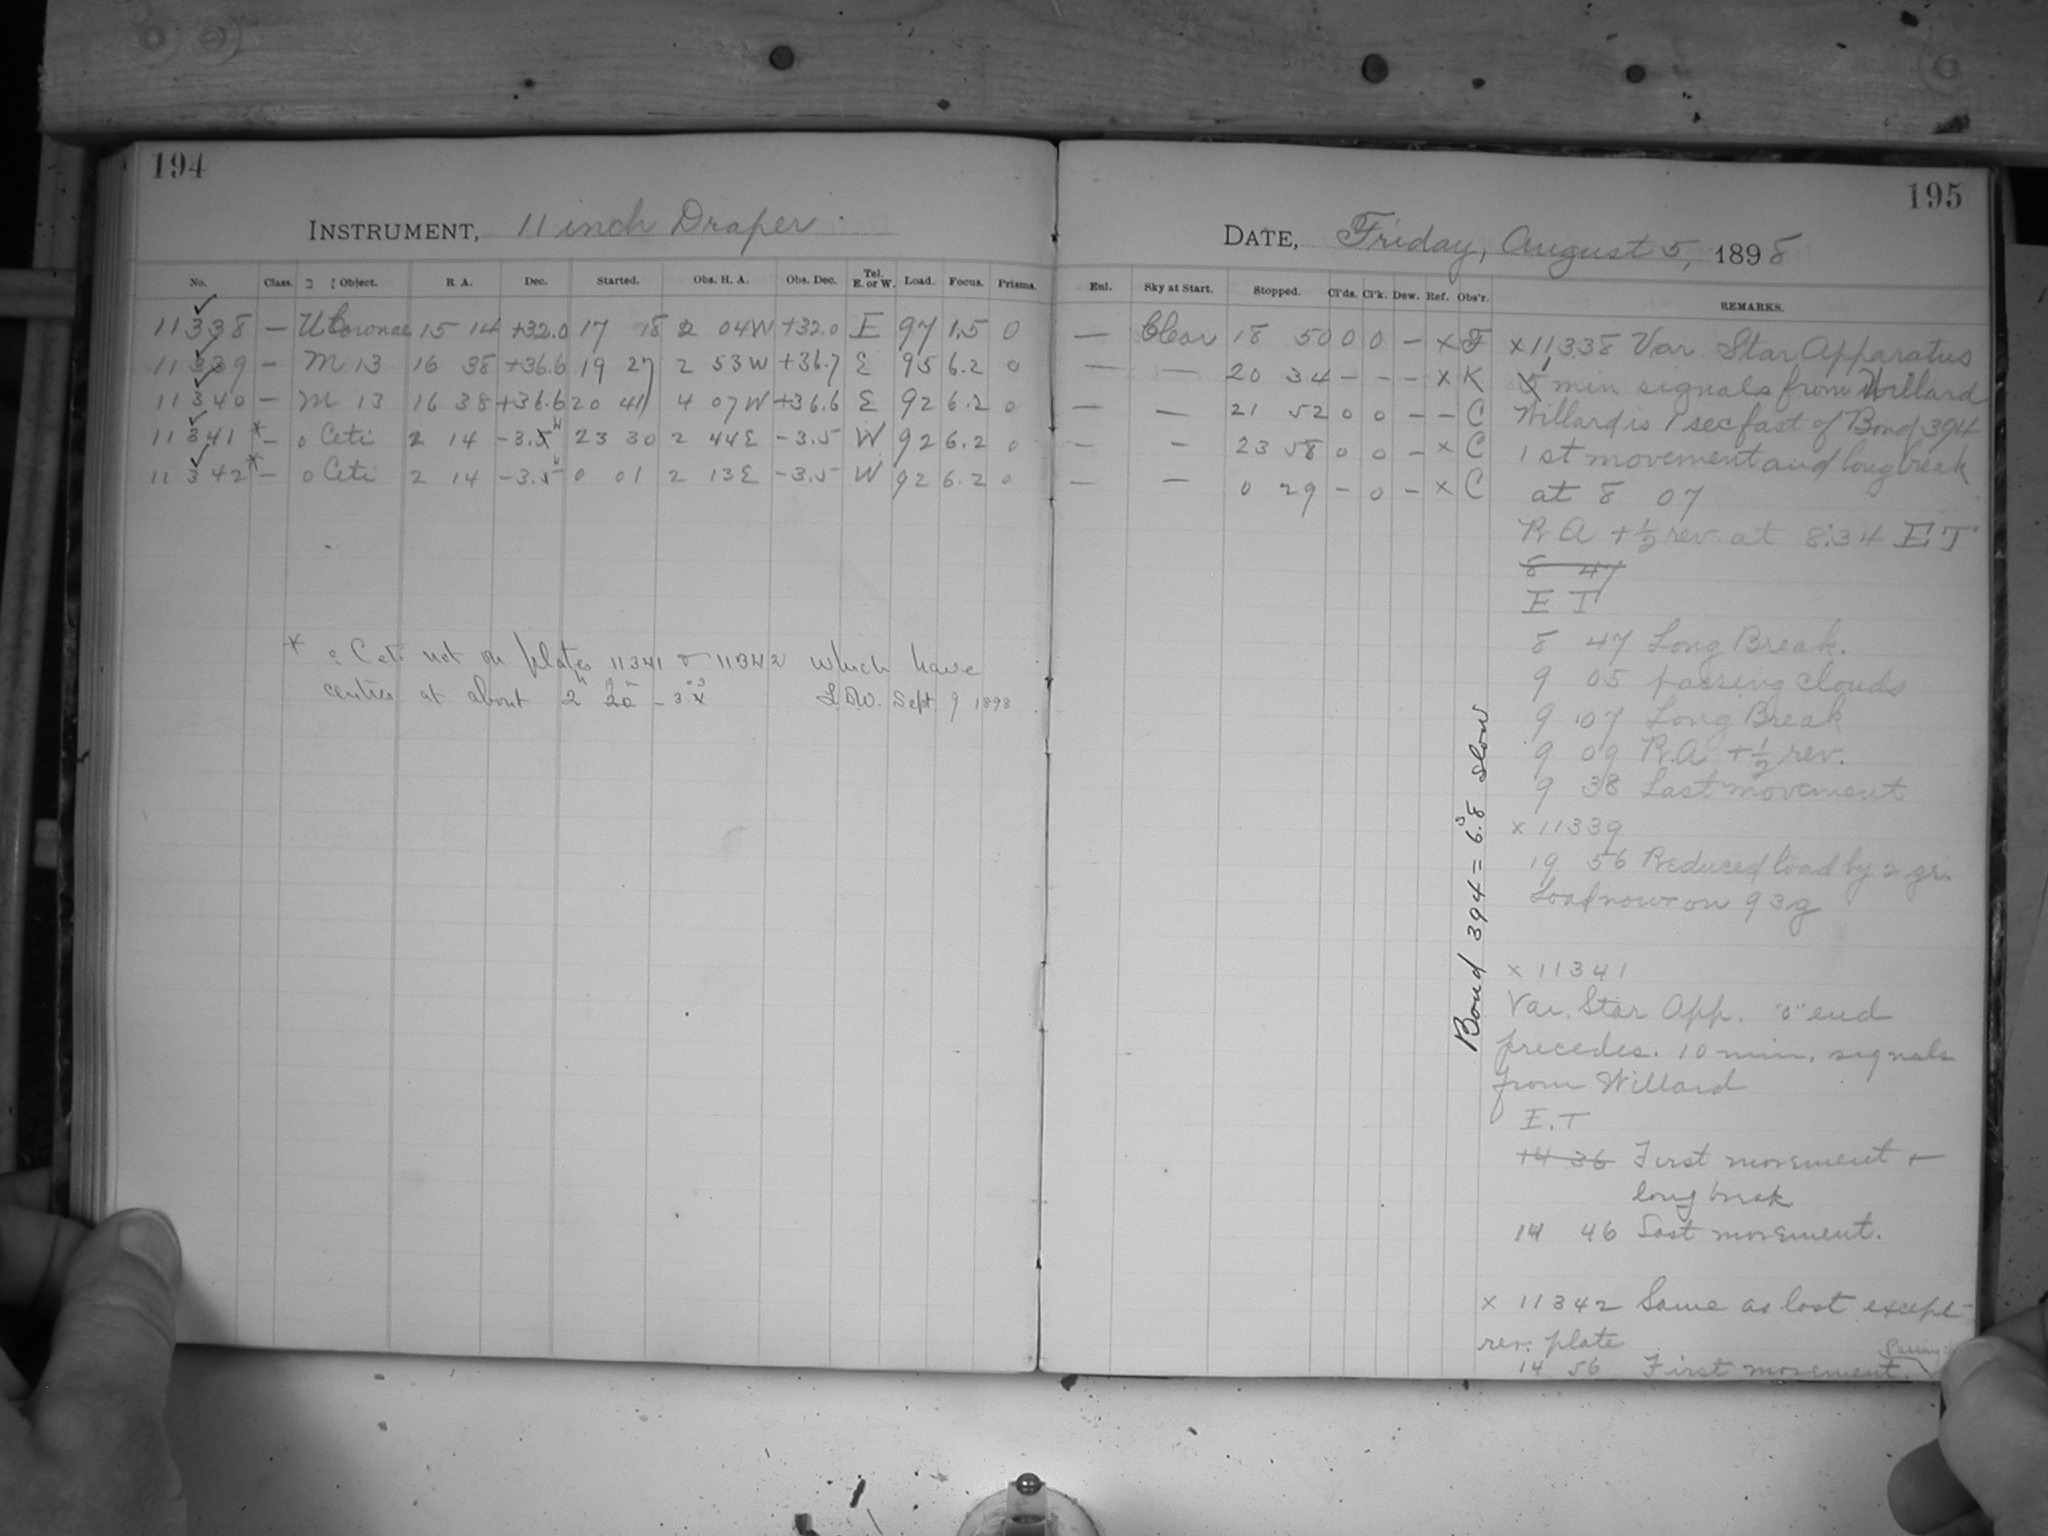 194
INSTRUMENT, 11 inch Draper
No. Class. Object. R. A. Dec. Started. Obs. H. A. Obs. Dec. Tel. E. or W. Load. Focus. Prisms.
11338 — U Coronae 15 14 +32.0 17 18 2 04W +32.0 E 97 1.5 0
11339 — M 13 16 38 +36.6 19 27 2 53W +36.7 E 95 6.2 0
11340 — M 13 16 38 +36.6 20 41 4 07W +36.6 E 92 6.2 0
11341 * — o Ceti 2 14 -3.5 23 30 2 44E -3.5 W 92 6.2 0
11342 * — o Ceti 2 14 -3.5 0 01 2 13E -3.5 W 92 6.2 0
* o Ceti not on plates 11341 & 11342 which have
centres at about 2h 20m -3.4 Sept. 9 1898
195
DATE, Friday, August 5, 1898
Enl. Sky at Start. Stopped. Cl'ds. Cl'k. Dew. Ref. Obs'r. REMARKS.
— Clear 18 50 0 0 — x F
— — 20 34 — — — x K
— — 21 52 0 0 — — C
— — 23 58 0 0 — x C
— — 0 29 — 0 — x C
x 11338 Var. Star Apparatus
min signals from Willard
Willard is 1 sec fast of Bond 394
1st movement and long break
at 8 07
R A + 1/2 rev. at 8:34 E.T
8 47
E T
8 47 Long Break.
9 05 passing clouds
9 07 Long Break
9 09 R.A. + 1/2 rev.
9 38 Last movement
x 11339
19 56 Reduced load by 2 gr.
Load now on 93g
x 11341
Var. Star App. "0" end
precedes. 10 min. signals
from Willard
E.T
14 36 First movement +
long break
14 46 Last movement.
x 11342 Same as last except
rev. plate
14 56 First movement.
Bond 394 = 6.8s slow